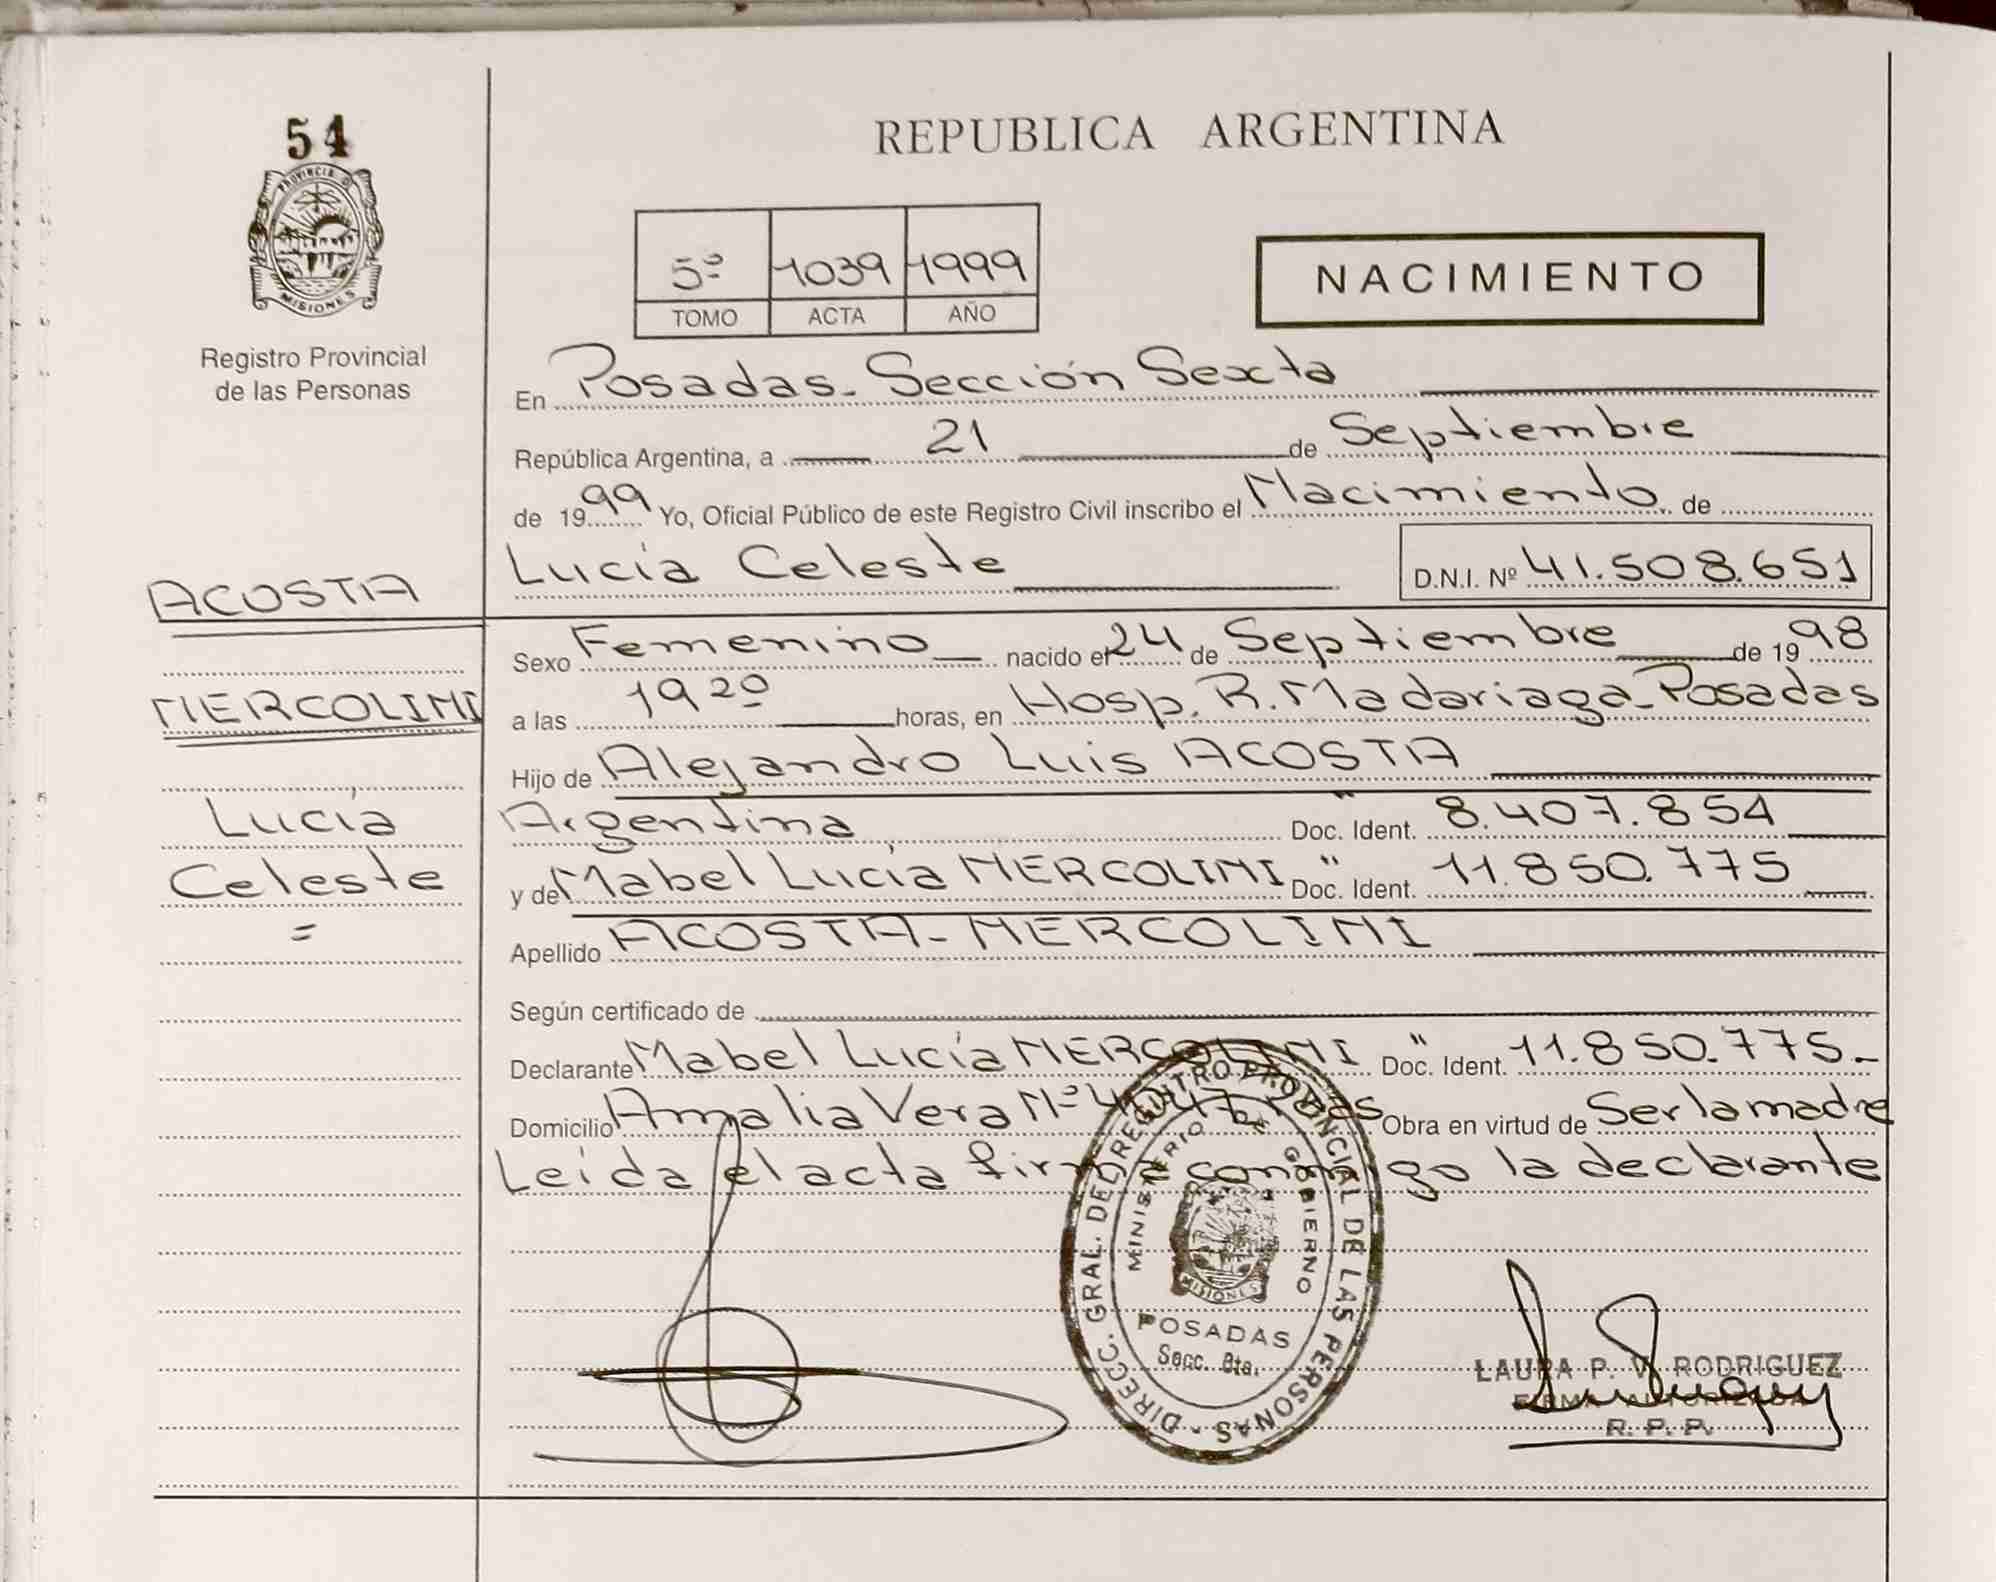 54
PROVINCIA D
MISIONES
Registro Provincial
de las Personas
REPUBLICA ARGENTINA
5º 1039 1999
TOMO ACTA AÑO
NACIMIENTO
En Posadas - Sección Sexta
República Argentina, a 21 de Septiembre
de 1999 Yo, Oficial Público de este Registro Civil inscribo el Nacimiento de
Lucía Celeste D.N.I. Nº 41.508.651
ACOSTA
MERCOLINI
Lucía
Celeste
=
Sexo Femenino nacido el 24 de Septiembre de 1998
a las 19 20 horas, en Hosp. R. Madariaga - Posadas
Hijo de Alejandro Luis ACOSTA
Argentina " Doc. Ident. 8.407.854
y de Mabel Lucía MERCOLINI " Doc. Ident. 11.850.775
Apellido ACOSTA - MERCOLINI
Según certificado de
Declarante Mabel Lucía MERCOLINI " Doc. Ident. 11.850.775.-
Domicilio Amalia Vera Nº Obra en virtud de Ser la madre
Leída el acta firma conmigo la declarante
DIRECC. GRAL. DEL REGISTRO PROVINCIAL DE LAS PERSONAS -
MINISTERIO DE GOBIERNO
MISIONES
POSADAS
Secc. 6ta.
LAURA P. V. RODRIGUEZ
FIRMA AUTORIZADA
R. P. P.